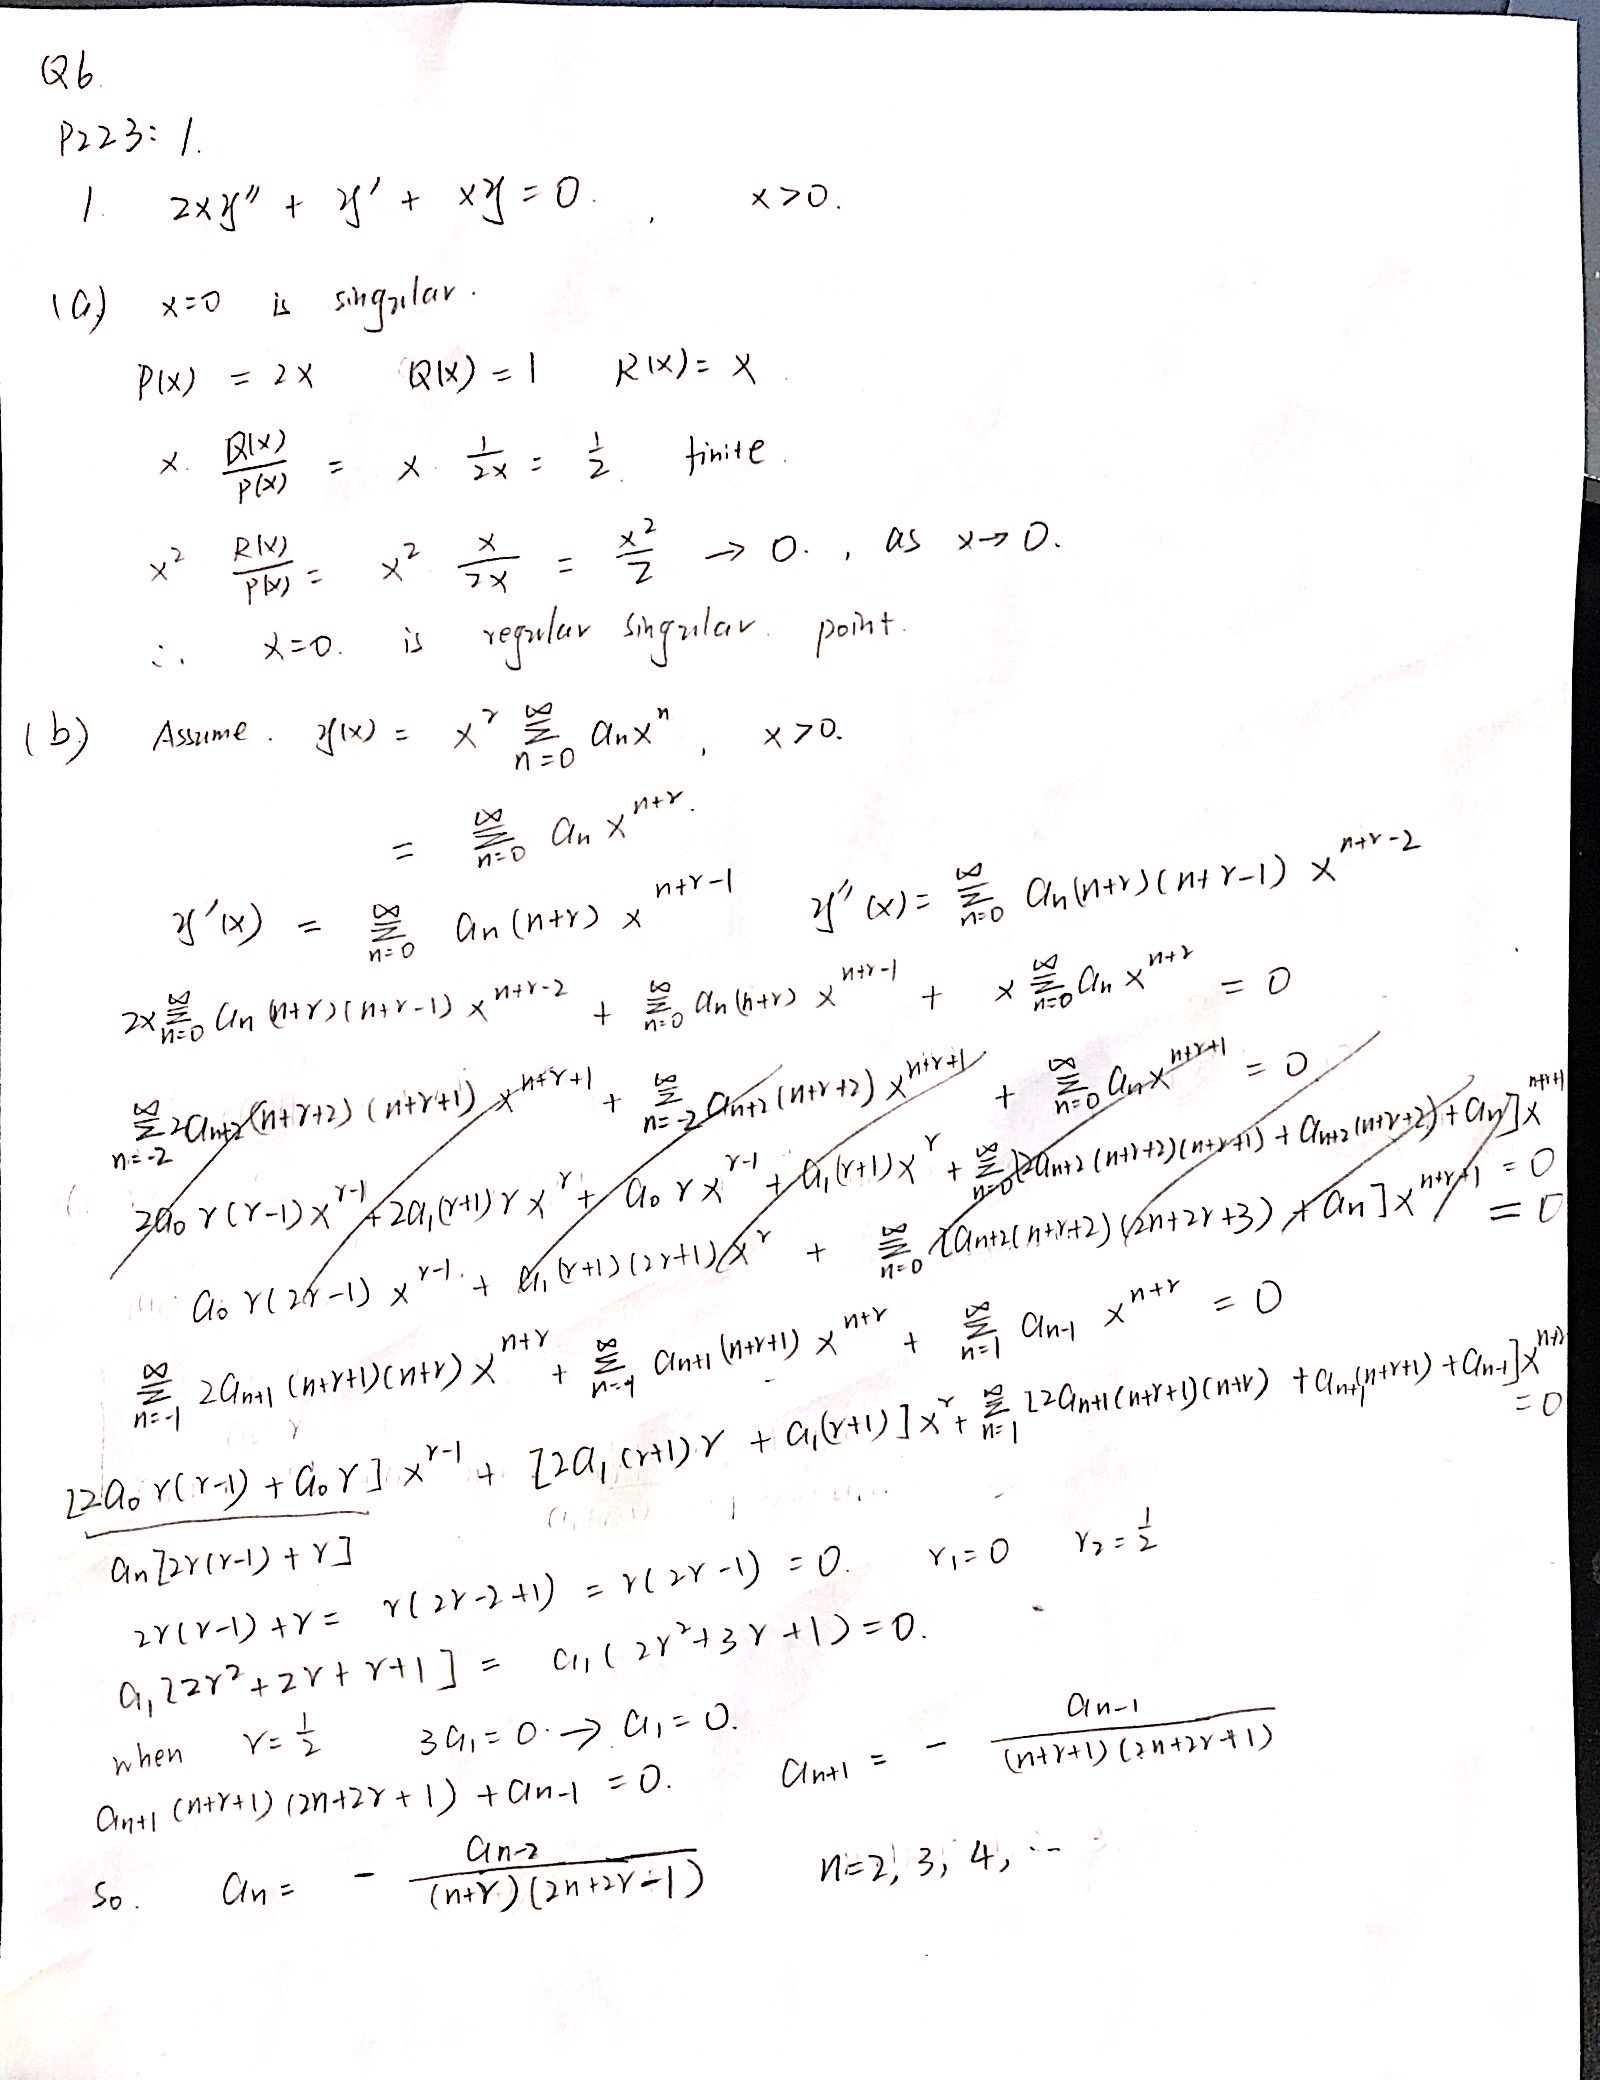 Q6.
P223: 1.
1. 2xy" + y' + xy = 0. , x>0.
(a) x=0 is singular.
P(x) = 2x Q(x) = 1 R(x) = x
x. Q(x)/P(x) = x · 1/2x = 1/2 finite.
x² R(x)/P(x) = x² x/2x = x²/2 → 0. , as x→0.
∴ x=0. is regular singular. point.
(b) Assume. y(x) = x^r ∑_{n=0}^∞ a_n x^n , x>0.
= ∑_{n=0}^∞ a_n x^{n+r}.
y'(x) = ∑_{n=0}^∞ a_n (n+r) x^{n+r-1} y"(x) = ∑_{n=0}^∞ a_n (n+r)(n+r-1) x^{n+r-2}
2x ∑_{n=0}^∞ a_n (n+r)(n+r-1) x^{n+r-2} + ∑_{n=0}^∞ a_n (n+r) x^{n+r-1} + x ∑_{n=0}^∞ a_n x^{n+r} = 0
∑_{n=-2}^∞ 2a_{n+2} (n+r+2)(n+r+1) x^{n+r+1} + ∑_{n=-2}^∞ a_{n+2} (n+r+2) x^{n+r+1} + ∑_{n=0}^∞ a_n x^{n+r+1} = 0
2a_0 r(r-1) x^{r-1} + 2a_1 (r+1) r x^r + a_0 r x^{r-1} + a_1 (r+1) x^r + ∑_{n=0}^∞ [2a_{n+2} (n+r+2)(n+r+1) + a_{n+2} (n+r+2) + a_n] x^{n+r+1} = 0
a_0 r(2r-1) x^{r-1} + a_1 (r+1)(2r+1) x^r + ∑_{n=0}^∞ [a_{n+2} (n+r+2)(2n+2r+3) + a_n] x^{n+r+1} = 0
∑_{n=-1}^∞ 2a_{n+1} (n+r+1)(n+r) x^{n+r} + ∑_{n=-1}^∞ a_{n+1} (n+r+1) x^{n+r} + ∑_{n=1}^∞ a_{n-1} x^{n+r} = 0
[2a_0 r(r-1) + a_0 r] x^{r-1} + [2a_1 (r+1) r + a_1 (r+1)] x^r + ∑_{n=1}^∞ [2a_{n+1} (n+r+1)(n+r) + a_{n+1} (n+r+1) + a_{n-1}] x^{n+r} = 0
a_n [2r(r-1) + r]
2r(r-1) + r = r(2r-2+1) = r(2r-1) = 0. r_1 = 0 r_2 = 1/2
a_1 [2r² + 2r + r + 1] = a_1 (2r² + 3r + 1) = 0.
when r = 1/2 3a_1 = 0. → a_1 = 0.
a_{n+1} (n+r+1)(2n+2r+1) + a_{n-1} = 0. a_{n+1} = - a_{n-1}/(n+r+1)(2n+2r+1)
So. a_n = - a_{n-2}/(n+r)(2n+2r-1) n=2, 3, 4, ...